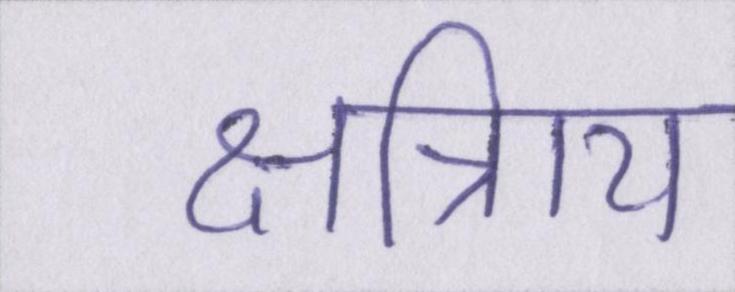 क्षत्रिाय